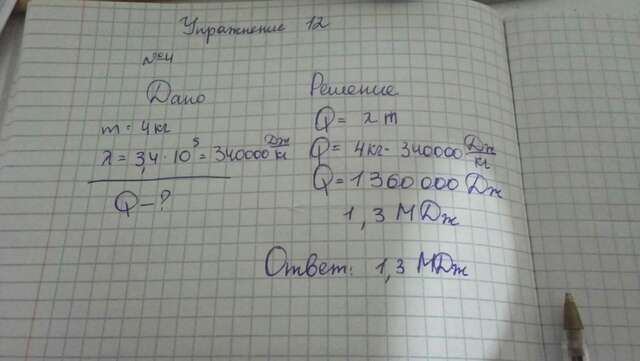 Упражнение 12
№4
Дано
m = 4кг
λ = 3,4 · 10⁵ = 340000 Дж/кг
Q – ?
Решение
Q = λ m
Q = 4кг · 340000 Дж/кг
Q = 1360000 Дж
1,3 МДж
Ответ: 1,3 МДж